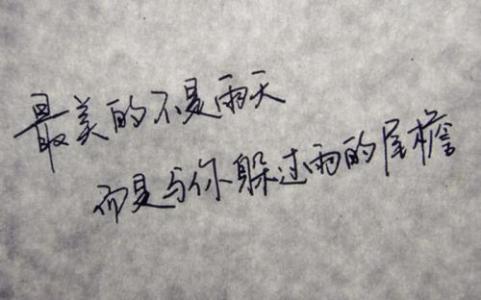 最美的不是雨天
而是与你躲过雨的屋檐